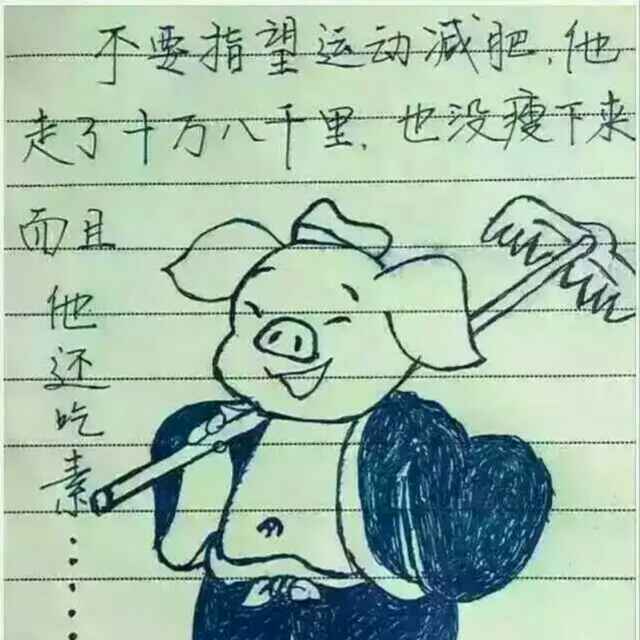 不要指望运动减肥，他
走了十万八千里，也没瘦下来
而且
他还吃素......